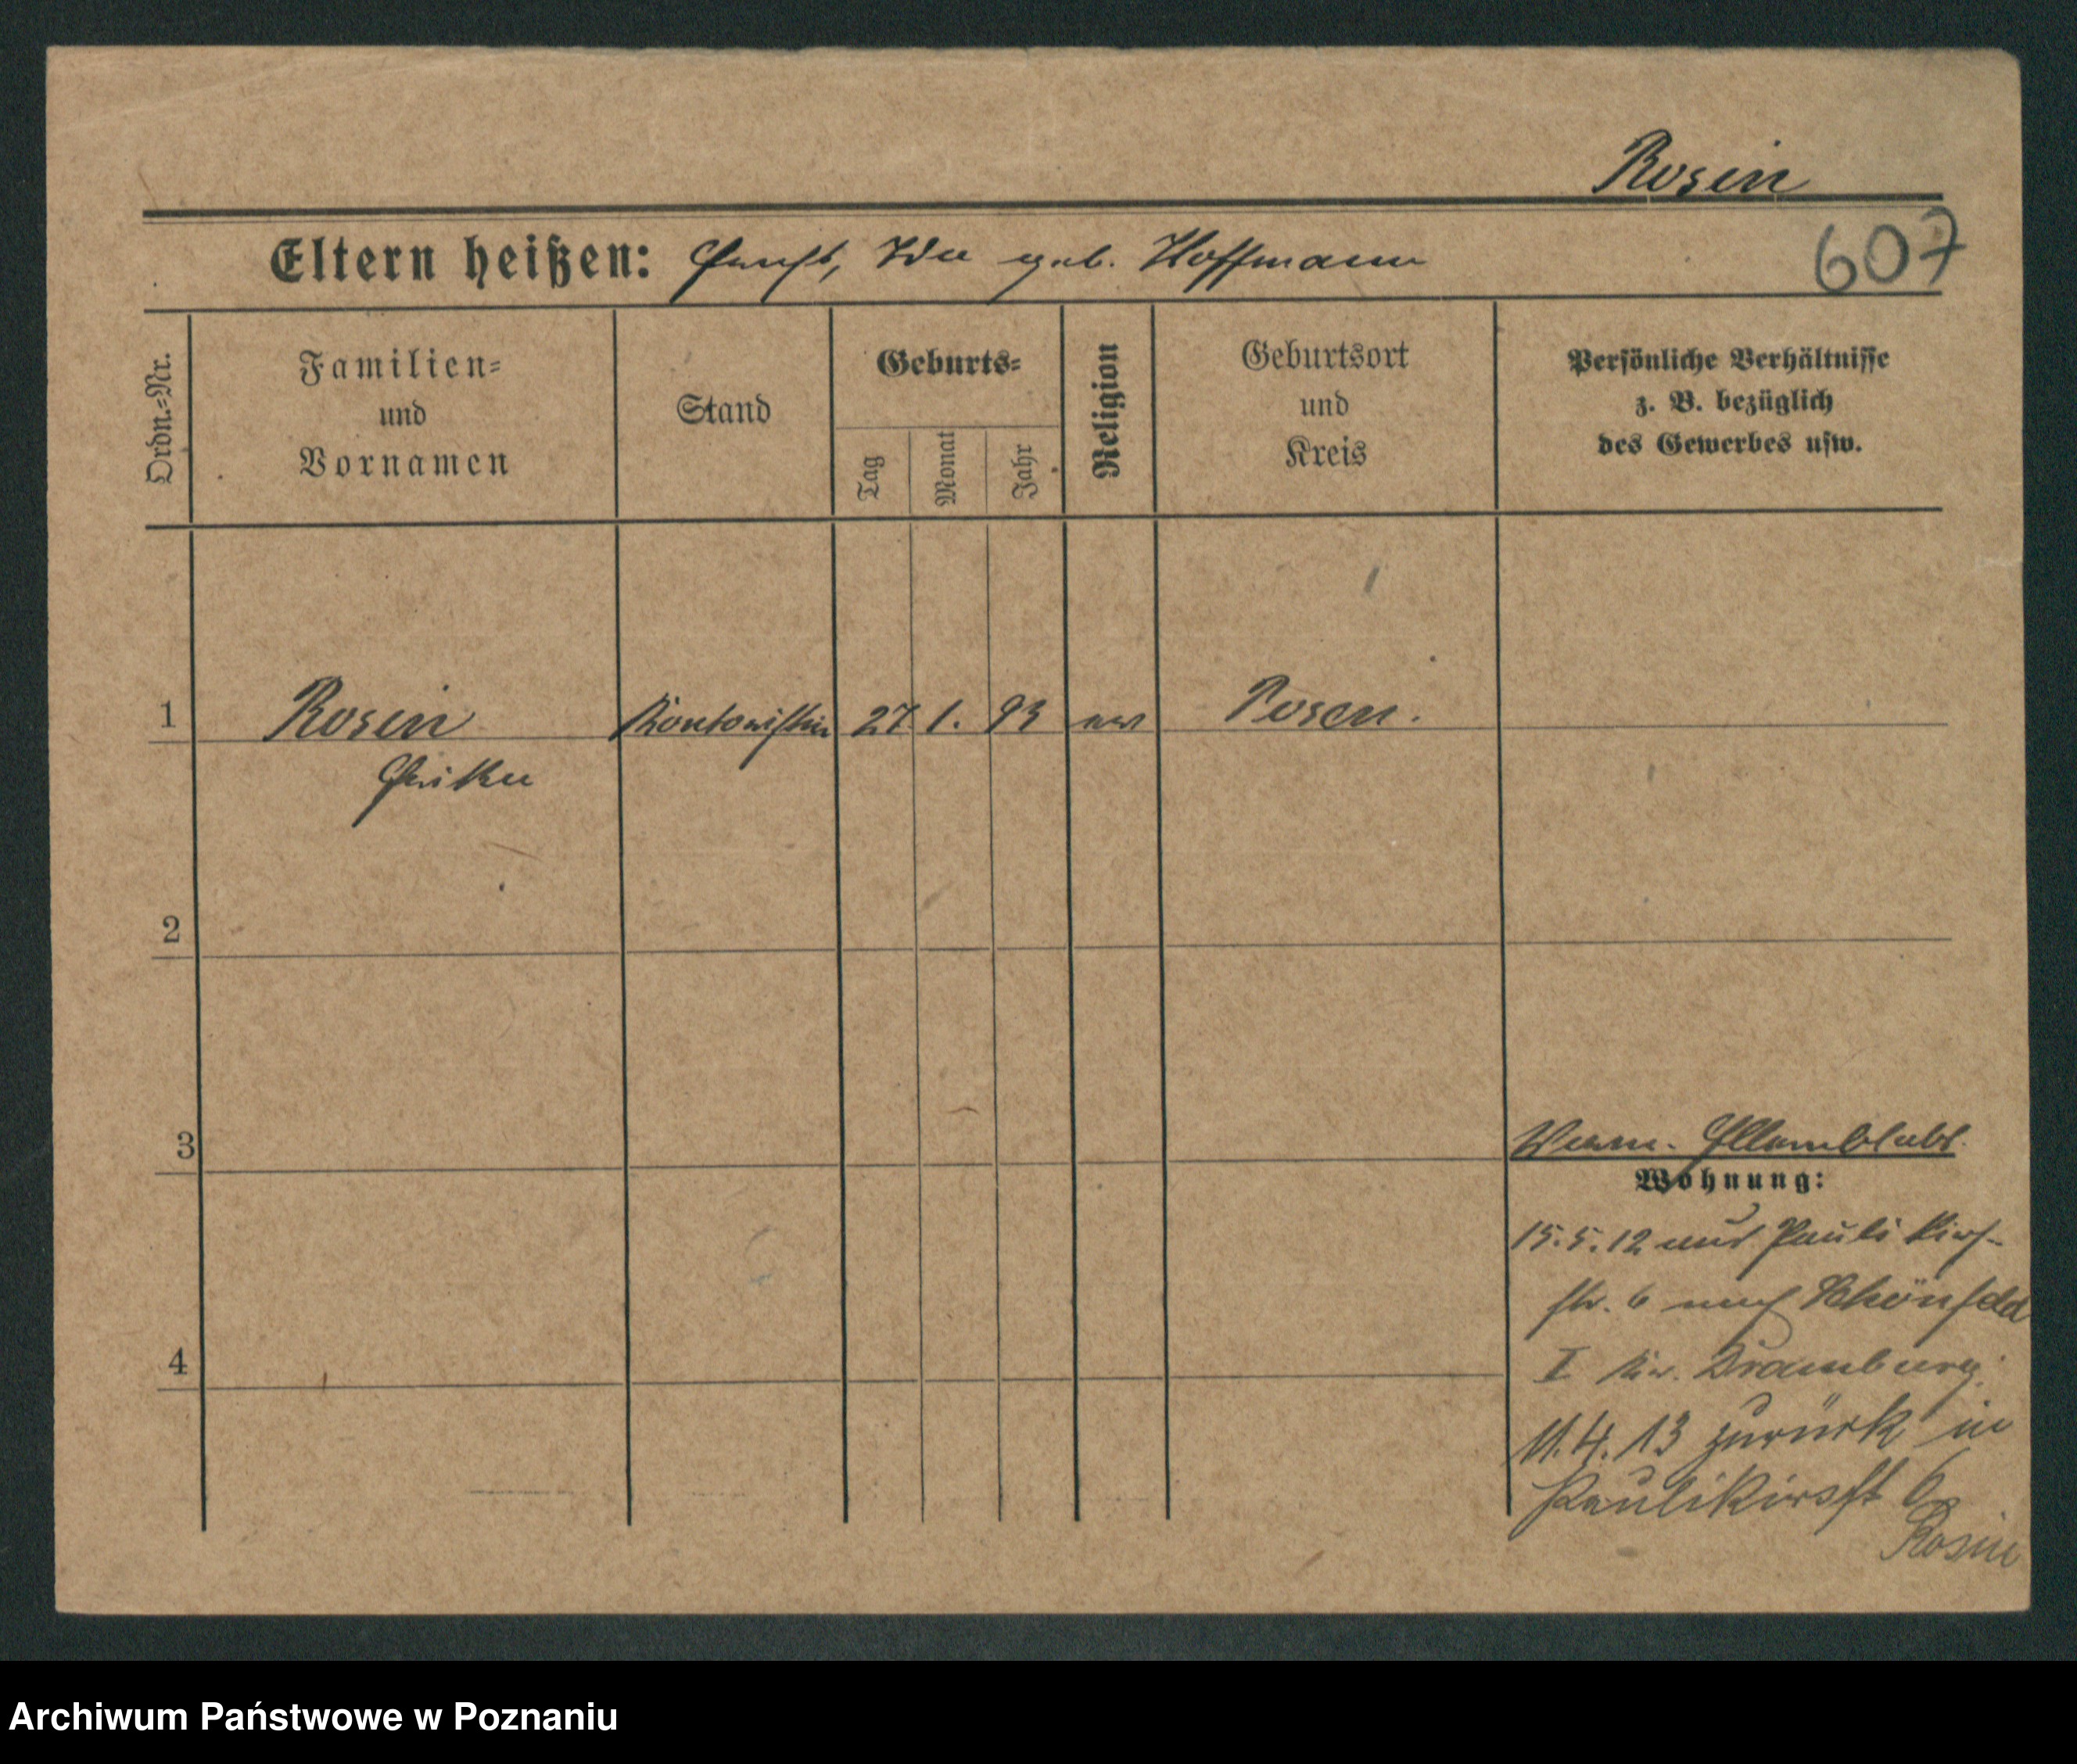 Rosin
Eltern heißen: Ernst, Ida geb. Hoffmann
607
Ordn.=Nr.
Familien=
und
Vornamen
Stand
Geburts=
Tag
Monat
Jahr
Religion
Geburtsort
und
Kreis
Persönliche Verhältnisse
z. B. bezüglich
des Gewerbes usw.
1
Rosin
Kontoristin
27. 1. 93
Posen.
Erika
2
3
Wohnung:
15. 5. 12 aus Pauli Kirch-
str. 6 nach Schönfeld
I Kr. Dramburg.
4
11. 4. 13 zurück in
Paulikirchst 6
Rosin
Archiwum Państwowe w Poznaniu